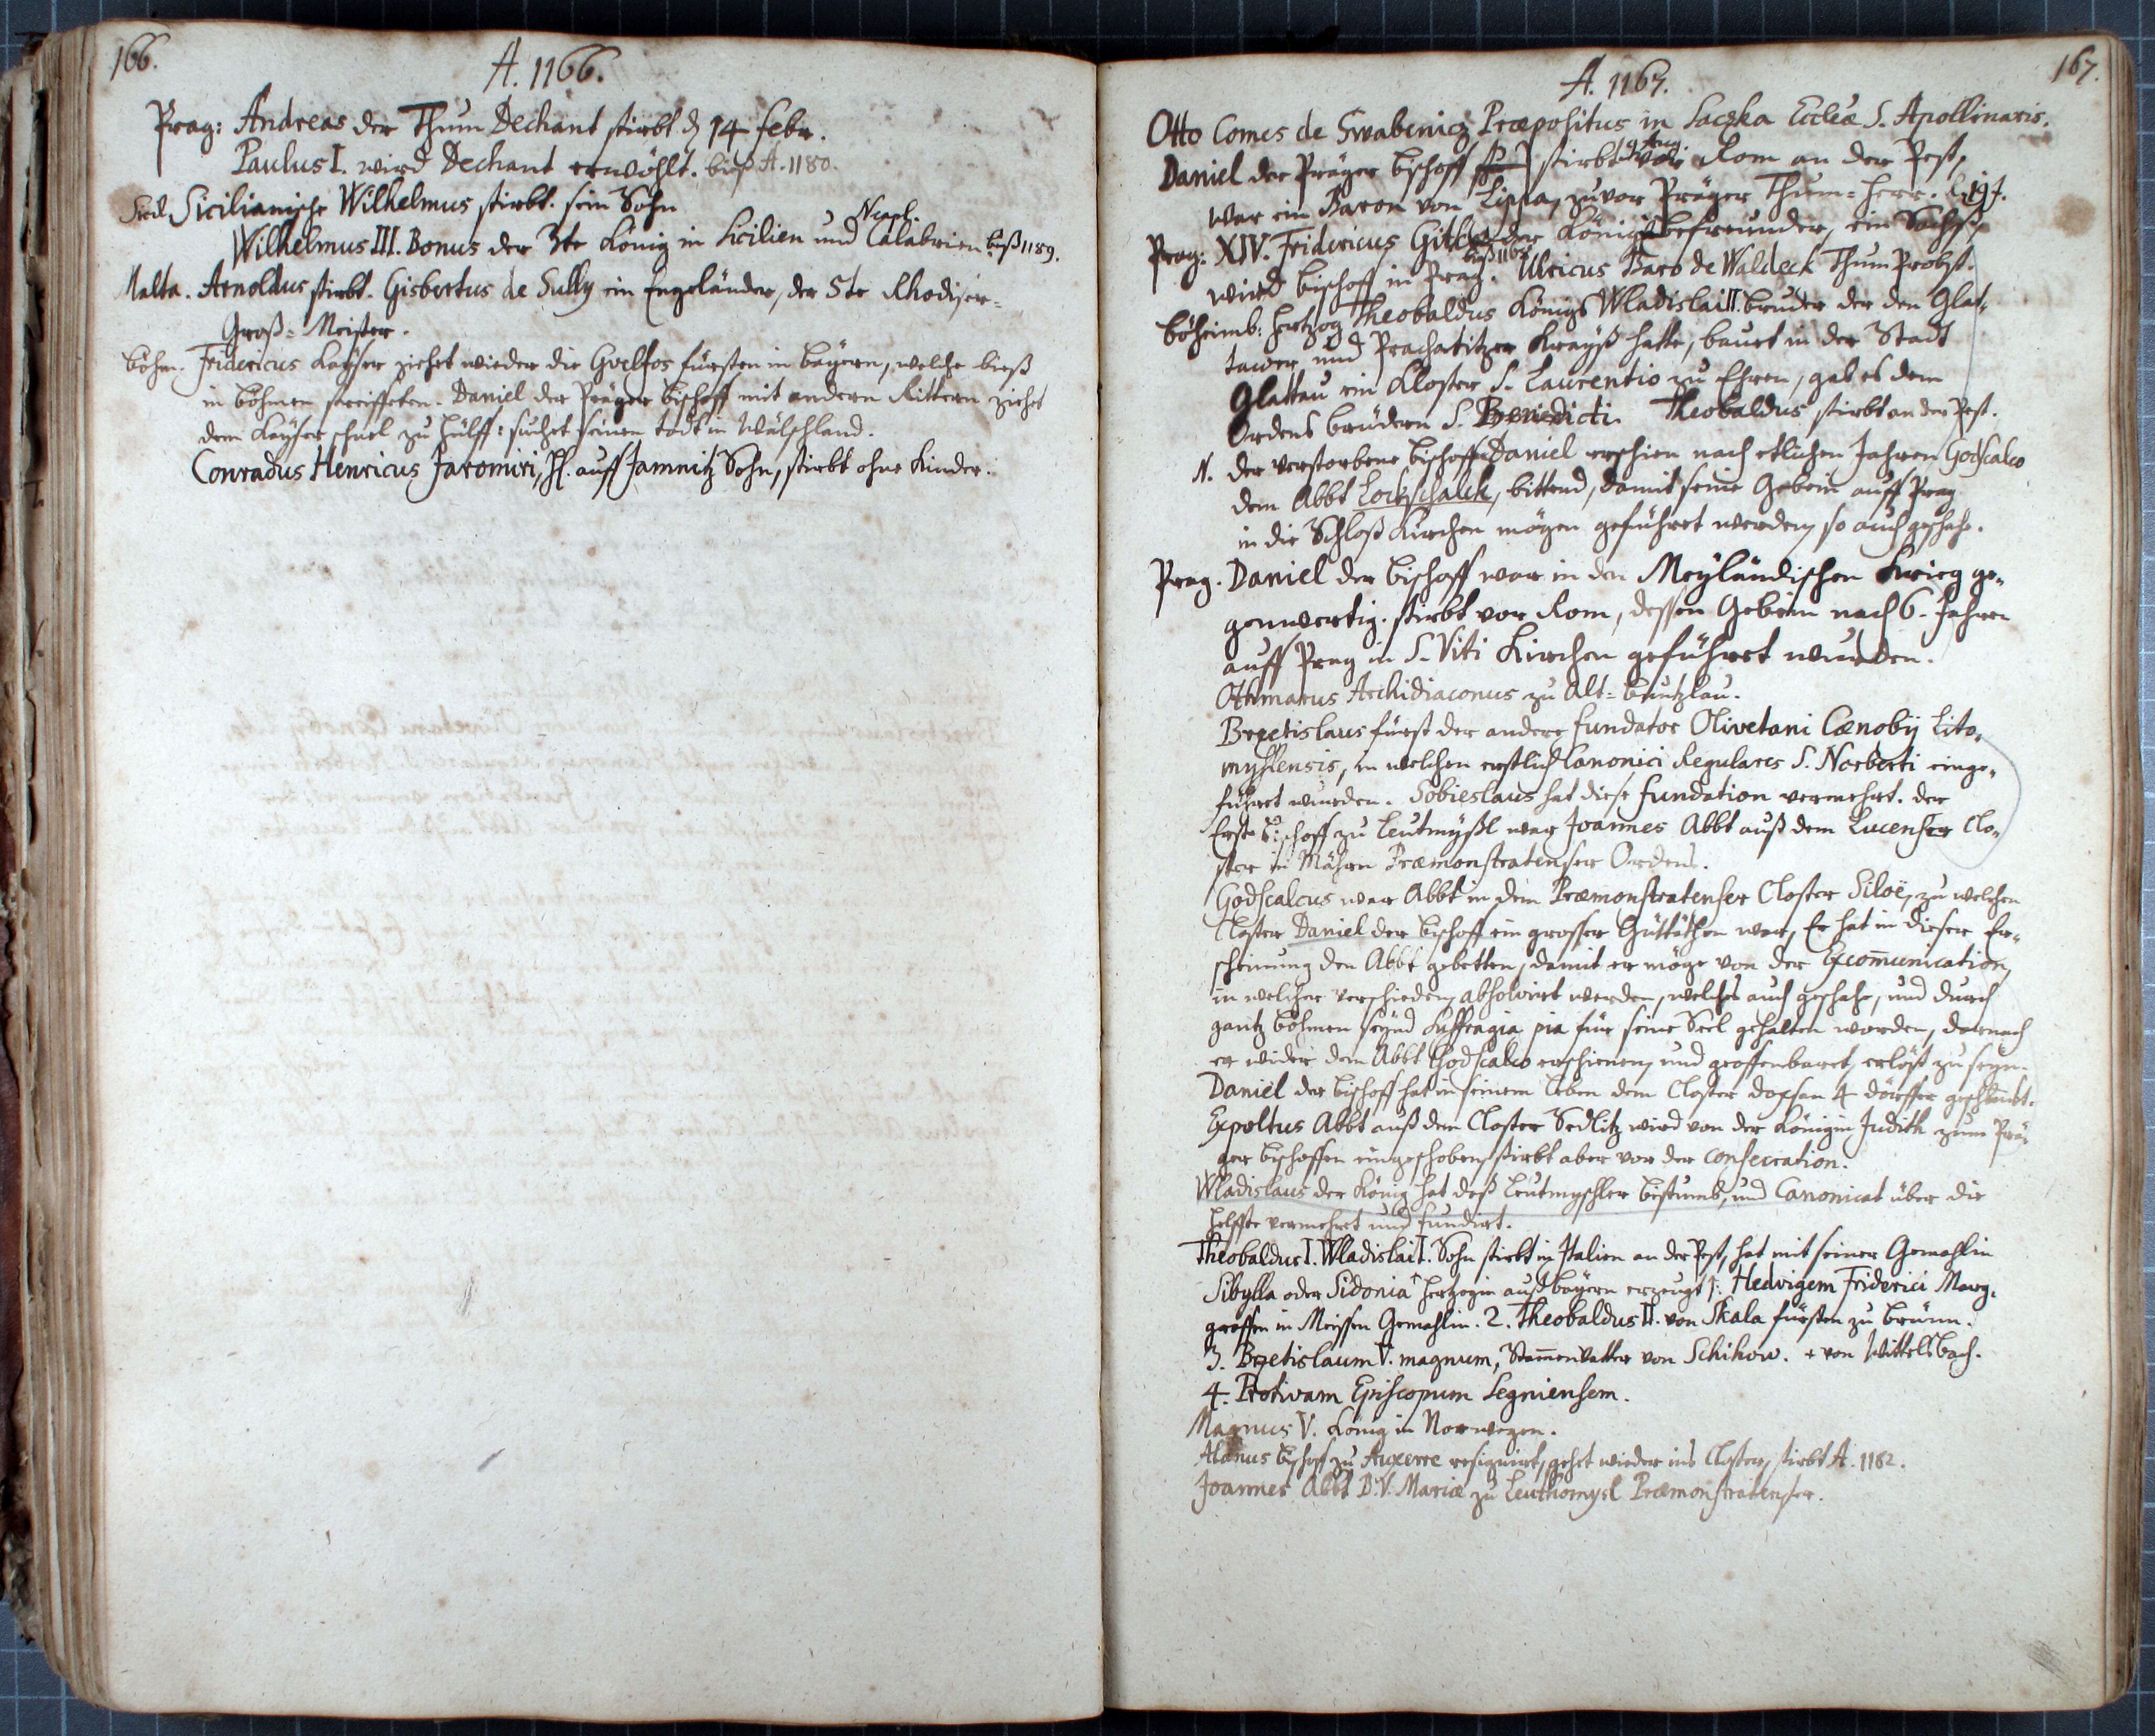 166.
A. 1166.
Prag: Andreas der Thum Dechant stirbt d. 14 febr.
Paulus I. wird Dechant erwöhlt. biß A. 1180.
Sicil. Sicilianische Wilhelmus stirbt. sein Sohn
Neapl.
Wilhelmus III. Bonus der 3te König in Sicilien und Calabrien biß 1189.
Malta. Arnoldus stirbt. Gisbertus de Sully ein Engeländer, der 5te Rhodiser-
Groß-Meister.
böhm. Fridericus Kayser ziehet wieder die Gvelfos fürsten in bayern, welche biß
in böhmen streiffeten. Daniel der Präger bischoff mit andern Rittern ziehet
dem Kayser schnel zu hülff: suchet seinen todt in Wälschland.
Conradus Henricus Jaromiri, H. auff Jamnitz Sohn, stirbt ohne Kinder.
167.
A. 1167.
Otto Comes de Swabenicz Præpositus in Saczka Eccleæ S. Apollinaris.
9 Aug.
Daniel der Präger bischoff stirbt vor Rom an der Pest,
war ein Baron von Lippa, zuvor Präger Thum-Herr.
Prag: XIV. Fridericus der Königs befreunder, ein Sachß,
wird bischoff in Prag. Ulricus Baro de Waldeck Thum Probst.
böheimb: hertzog Theobaldus Königs Wladislai II. bruder der den Glat-
tawer und Prachatitzer Krayß hatte, bauet in der Stadt
Glattau ein Kloster S. Laurentio zu Ehren, gab es dem
Ordens brüdern S. Benedicti. Theobaldus stirbt an der Pest.
N. der verstorbene bischoff Daniel erschien nach etlichen Jahren Godscalco
dem Abbt Lockschalck, bittend, damit seine Gebein auff Prag
in die Schloß Kirchen mögen geführet werden, so auch geschahe.
Prag. Daniel der bischoff war in den Meyländischen Krieg ge-
genwertig. stirbt vor Rom, dessen Gebein nach 6. Jahren
auff Prag in S. Viti Kirchen geführet wurden.
Othmarus Archidiaconus zu Alt-buntzlau.
Brzetislaus fürst der andere fundator Olivetani Cœnobij Lito-
myslensis, in welchen erstlich Canonici Regulares S. Norberti einge-
führet wurden. Sobieslaus hat diese fundation vermehrt. der
Erste bischoff zu Leutmyßl war Joannes Abbt auß dem Lucenser Clo-
ster in Mähren Præmonstratenser Ordens.
Godscalcus war Abbt in dem Præmonstratenser Closter Siloë, zu welchen
Closter Daniel der bischoff ein grosser Gutthäter war, Er hat in dieser Er-
scheinung den Abbt gebetten, damit er möge von der Excom̄unication
in welcher verschieden, absolvirt werden, welches auch geschahe, und durch
gantz böhmen seynd suffragia pia für seine Seel gehalten worden, darnach
er wider dem Abbt Godscalco erschienen, und geoffenbaret, erlöst zu seyn.
Daniel der bischoff hat in seinem leben dem Closter doxan 4 dörffer geschenckt.
Expoltus Abbt auß dem Closter Sedlitz wird von der Königin Judith zum Prä-
ger bischoffen eingeschoben, stirbt aber vor der consecration.
Wladislaus der König hat daß Leutmyschler bistumb, und Canonicat über die
helffte vermehret und fundirt.
Theobaldus I. Wladislai I. Sohn stirbt in Italien an der Pest, hat mit seiner Gemahlin
Sibylla oder Sidonia + hertzogin auß bayern erzeugt 1. Hedvigem Friderici Marg-
graffen in Meissen Gemahlin. 2. Theobaldus II. von Skala fürsten zu brünn.
3. Brzetislaum V. magnum, Stam̄enVatter von Schihow. + von Wittelsbach.
4. Protivam Episcopum Segniensem.
Magnus V. König in Norwegen.
Alanus bischof zu Auxerre resignirt, gehet wieder ins Closter, stirbt A. 1182.
Joannes Abbt B.V. Mariæ zu Leuthomysl Præmonstratenser.